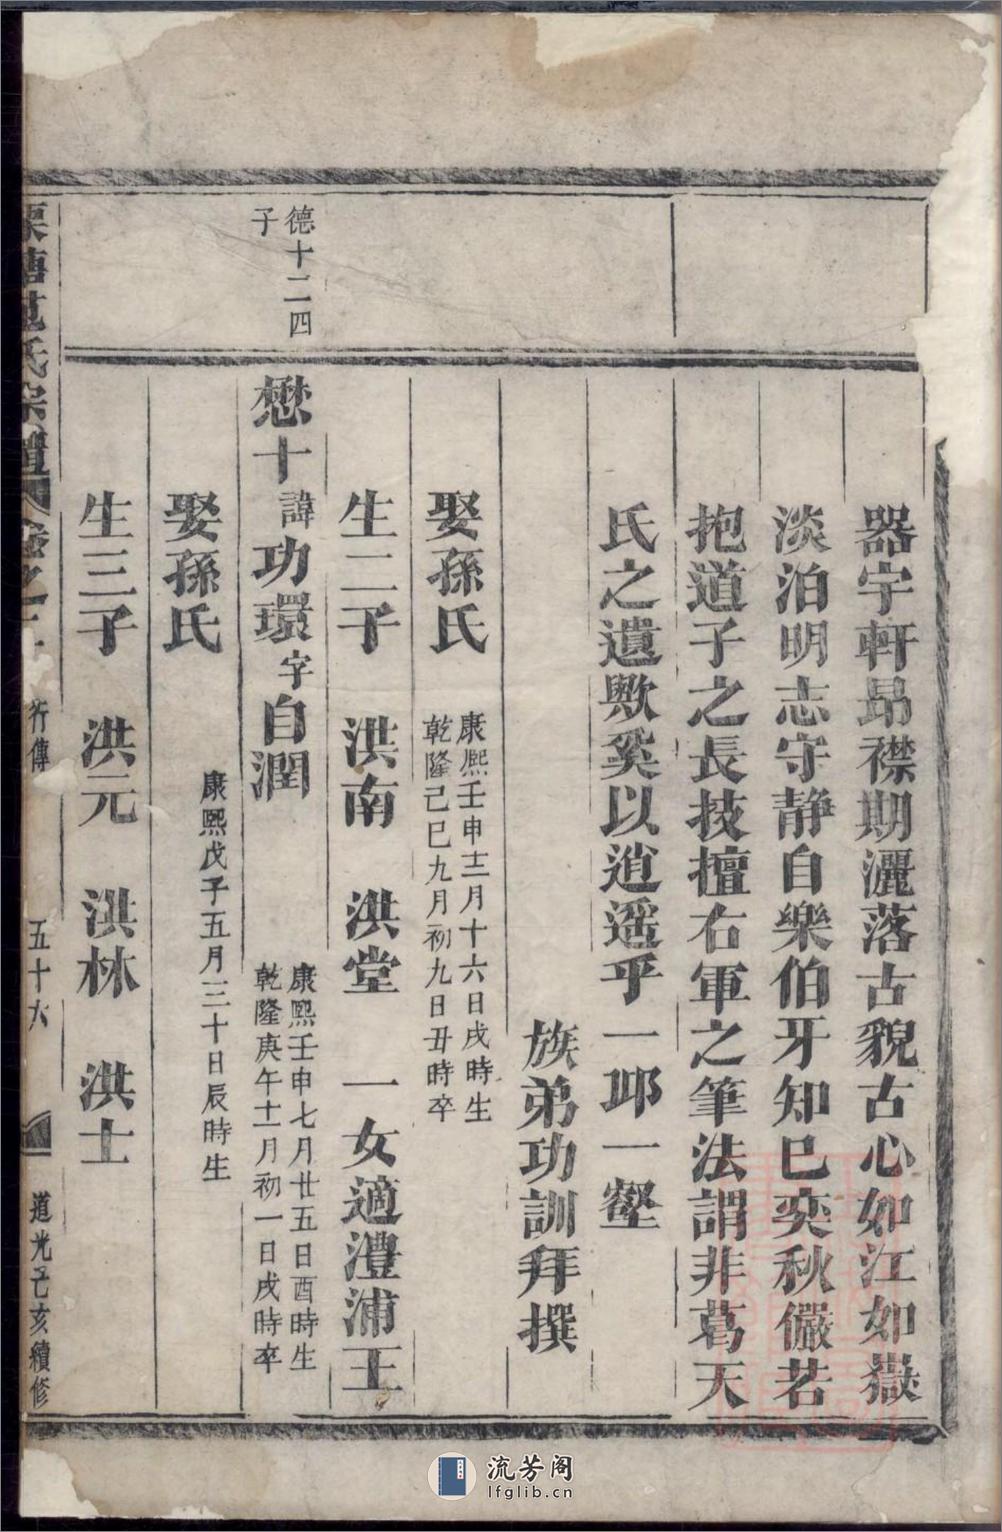 器宇軒昂襟期灑落古貌古心如江如嶽
淡泊明志守靜自樂伯牙知已奕秋儼若
抱道子之長技擅右軍之筆法謂非葛天
氏之遺歟奚以逍遥乎一邱一壑
族弟功訓拜撰
娶孫氏
康熈壬申十二月十六日戌時生
乾隆己巳九月初九日丑時卒
生二子 洪南 洪堂 一女適澧浦王
德十二四
子
懋十諱功環字自潤
康熙壬申七月廿五日酉時生
乾隆庚午十一月初一日戌時卒
娶孫氏
康熙戊子五月三十日辰時生
生三子 洪元 洪林 洪士
氏宗譜 卷之 行傳 五十六 道光己亥續修
流芳阁
lfglib.cn